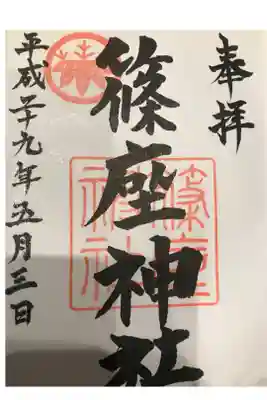 奉拝
篠座神社
平成二十九年五月三日
篠座神社